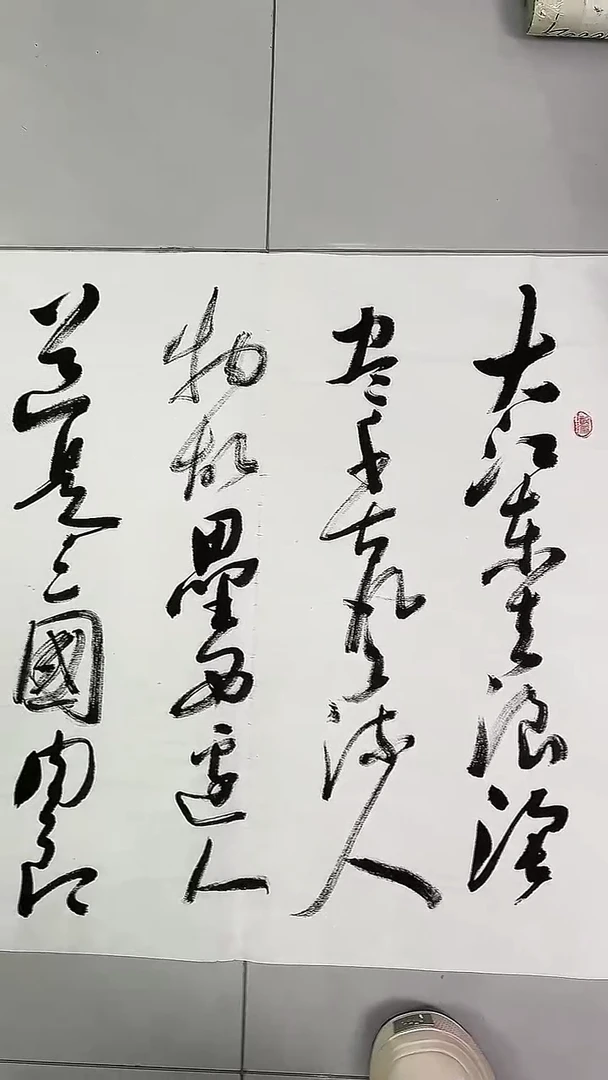 大江东去浪淘
尽千古风流人
物故壘西邊人
道是三國周郎